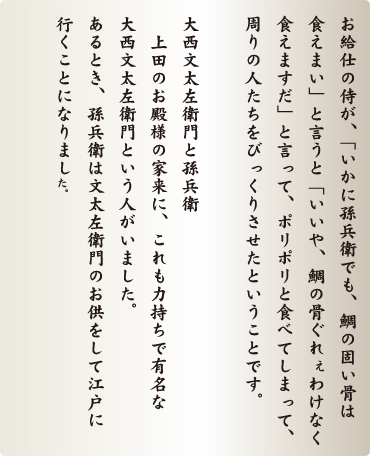 お給仕の侍が、「いかに孫兵衛でも、鯛の固い骨は
食えまい」と言うと「いいや、鯛の骨ぐれぇわけなく
食えますだ」と言って、ポリポリと食べてしまって、
周りの人たちをびっくりさせたということです。
大西文太左衛門と孫兵衛
上田のお殿様の家来に、これも力持ちで有名な
大西文太左衛門という人がいました。
あるとき、孫兵衛は文太左衛門のお供をして江戸に
行くことになりました。